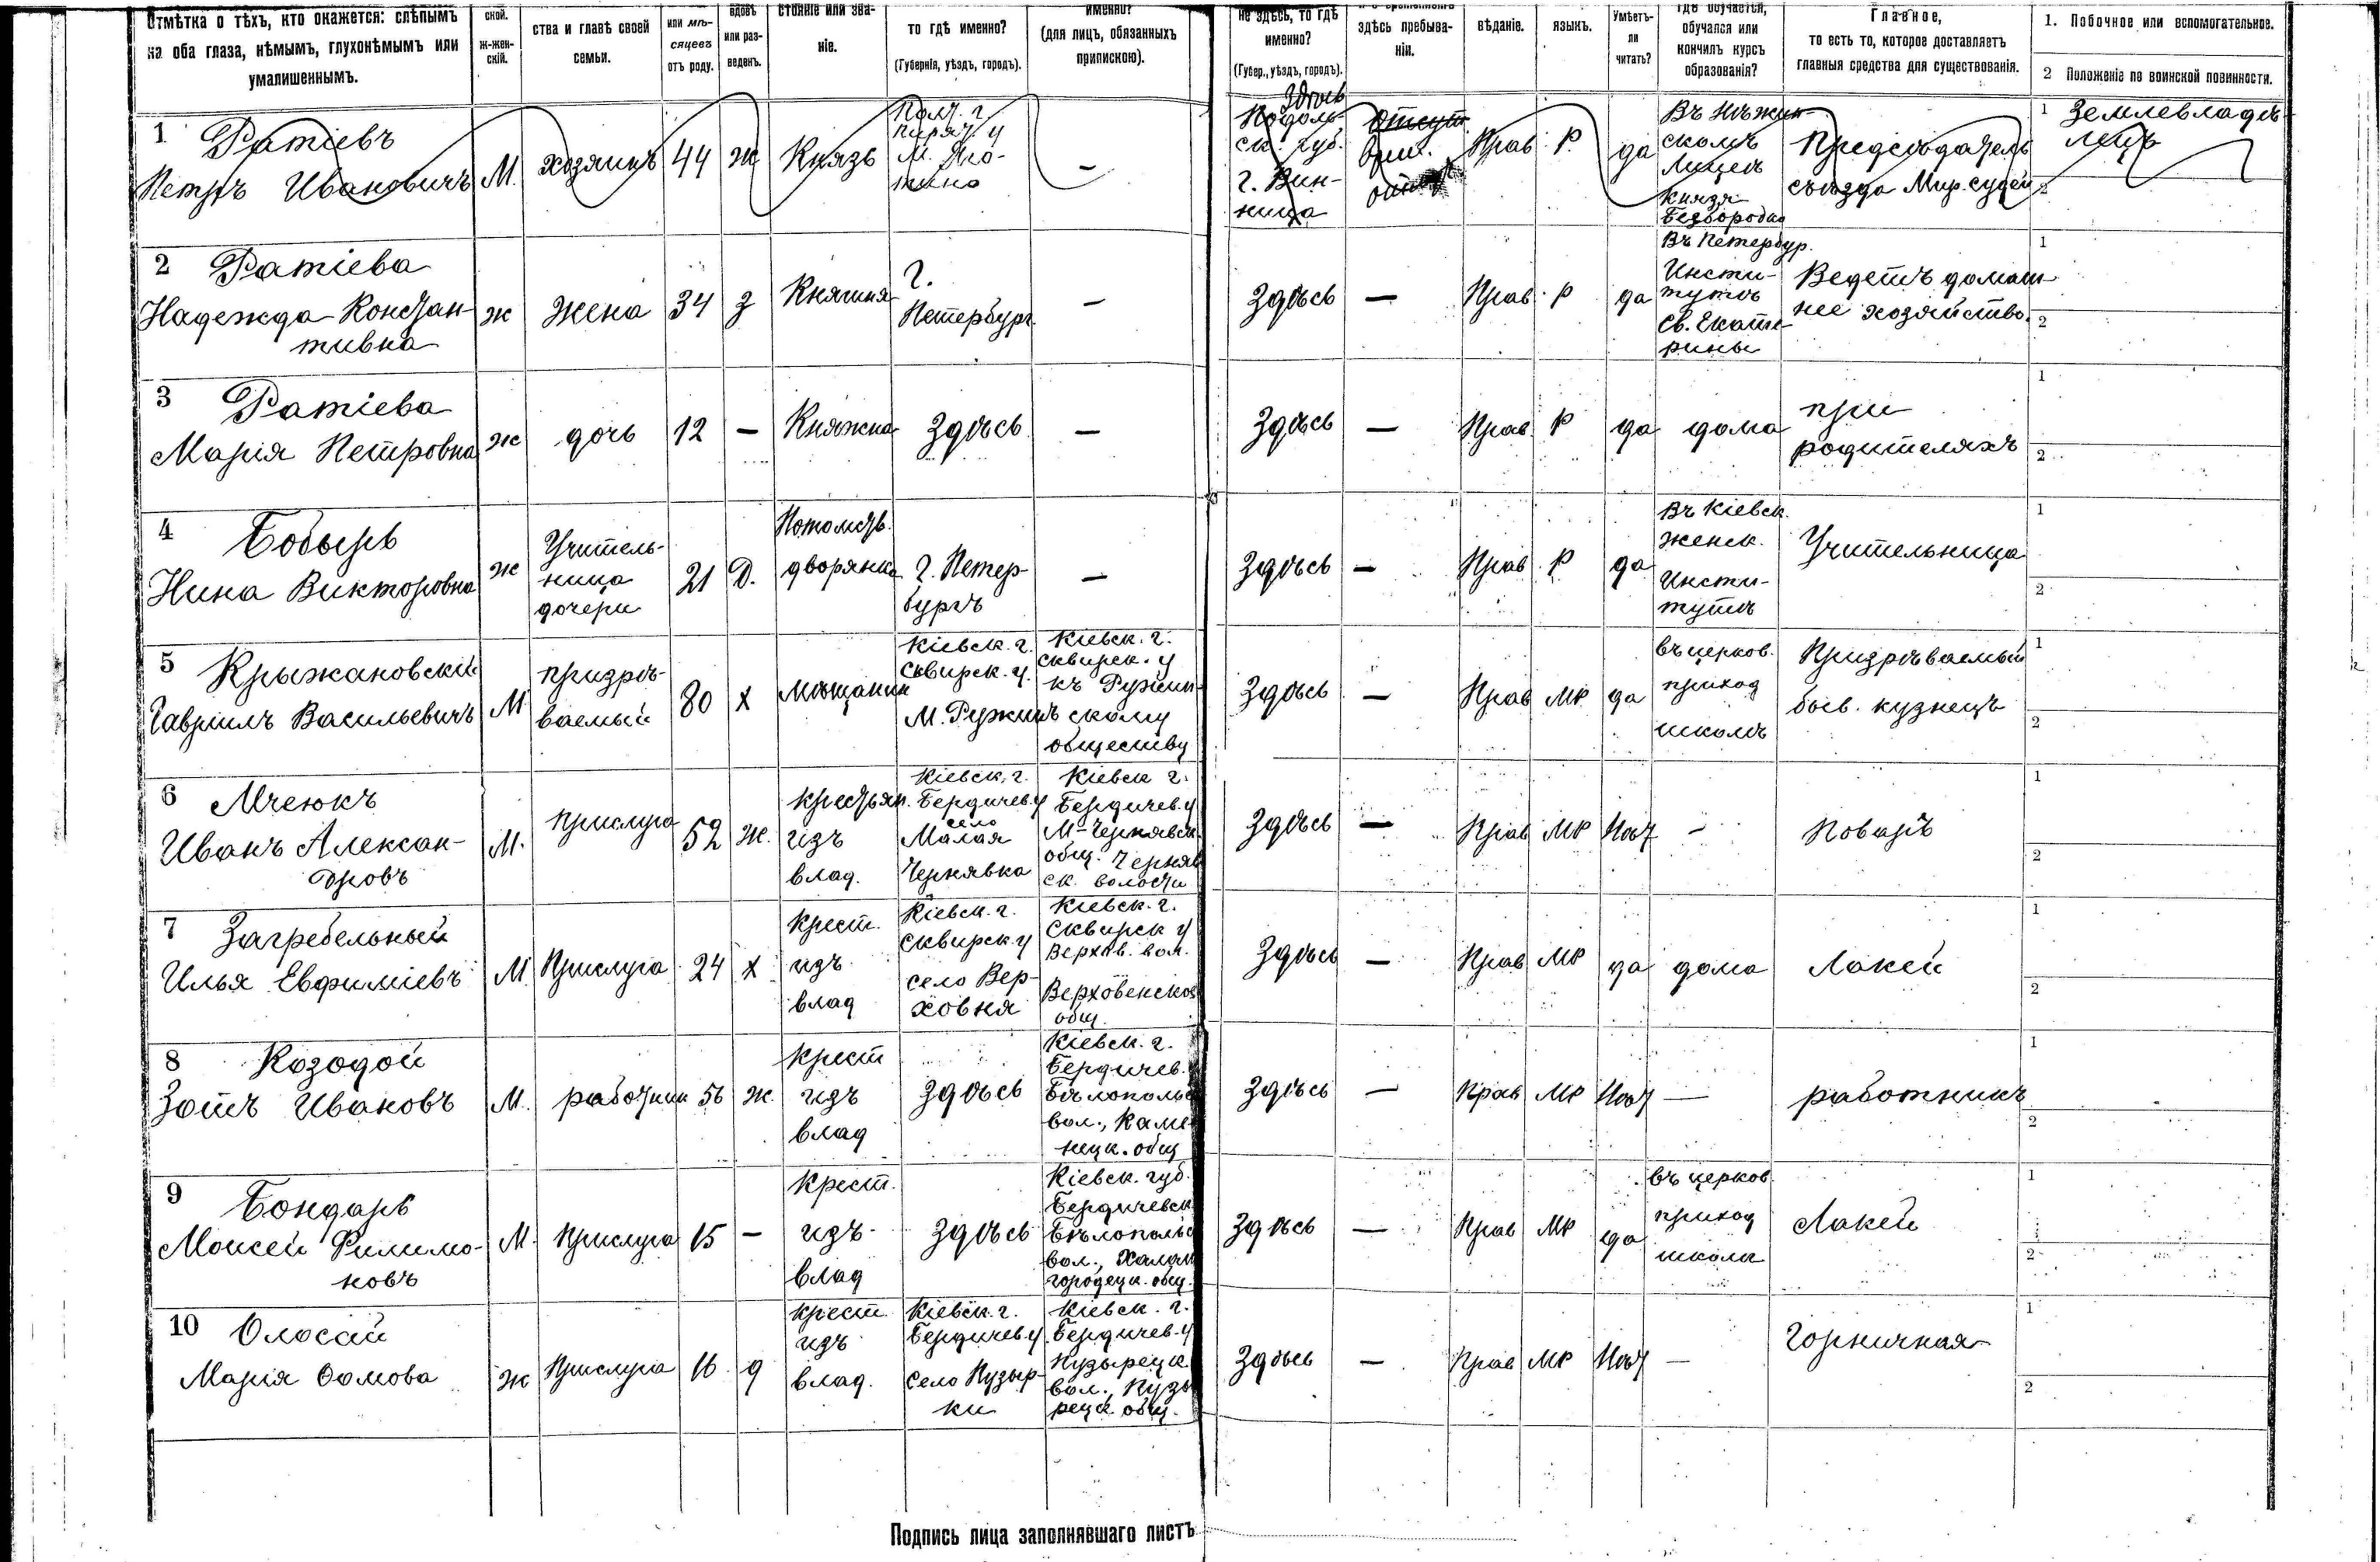 Отмѣтка о тѣхъ, кто окажется: слѣпымъ
на оба глаза, нѣмымъ, глухонѣмымъ или
умалишеннымъ.
ской.
ж-жен-
скій.
ства и главѣ своей
семьи.
или мѣ-
сяцевъ
отъ роду.
вдовъ
или раз-
веденъ.
стояніе или зва-
ніе.
то гдѣ именно?
(Губернія, уѣздъ, городъ).
именно?
(для лицъ, обязанныхъ
припискою).
не здѣсь, то гдѣ
именно?
(Губер., уѣздъ, городъ).
здѣсь пребыва-
ніи.
вѣданіе.
языкъ.
Умѣетъ-
ли
читать?
гдѣ обучается,
обучался или
кончилъ курсъ
образованія?
Главное,
то есть то, которое доставляетъ
главныя средства для существованія.
1. Побочное или вспомогательное.
2 Положеніе по воинской повинности.
1 Ратіевъ
Петръ Ивановичъ
М.
хозяинъ
44
ж
Князь
Полт. г
пирят. у
—
Здѣсь
Подоль-
ск. губ.
г. Вин-
ница
Прав
Р.
да
Въ Нѣжин-
скомъ
Лицеѣ
Князя
Безбородко
Предсѣдатель
съѣзда Мир. судей
1 Землевладѣ-
лецъ
2
2 Ратіева
Надежда Констан-
тивна
ж
жена
34
з
Княгиня
г.
Петербург
—
Здѣсь
—
Прав
Р
да
Въ Петербур.
Инсти-
тутѣ
Св. Екате-
рины
Ведетъ домаш-
нее хозяйство.
1
2
3 Ратіева
Марія Петровна
ж
дочь
12
—
Княжна
Здѣсь
—
Здѣсь
—
Прав
Р
да
дома
при
родителяхъ
1
2
4 Бобырь
Нина Викторовна
ж
Учитель-
ница
дочери
21
Д.
Потомств.
дворянка
г. Петер-
бургъ
—
Здѣсь
—
Прав
Р
да
Въ Кіевск.
женск.
Инсти-
тутѣ
Учительница
1
2
5 Крыжановскій
Гавріилъ Васильевичъ
М
призрѣ-
ваемый
80
х
Мѣщанин
Кіевск. г.
Сквирск. у.
М. Ружинъ
Кіевск. г.
сквирск. у
къ Ружин-
скому
обществу
Здѣсь
—
Прав
МР
да
въ церков.
приход
школѣ
Призрѣваемый
быв. кузнецъ
1
2
6 Мчеюкъ
Иванъ Алексан-
дровъ
М.
Прислуга
52
ж.
крестьян.
изъ
влад.
Кіевск. г.
Бердичев. у
село
Малая
Чернявка
Кіевск г.
Бердичев. у
М-Чернявск.
общ. Черняв
ск. волости
Здѣсь
—
Прав
МР
Нѣт
—
Поваръ
1
2
7 Загребельный
Илья Евфиміевъ
М
Прислуга
24
х
крест.
изъ
влад
Кіевск. г.
сквирск. у
село Вер-
ховня
Кіевск. г.
Сквирск у
Верхов. вол.
Верховенское
общ.
Здѣсь
—
Прав
МР
да
дома
Лакей
1
2
8 Козодой
Зотъ Ивановъ
М.
работник
56
ж.
крест
изъ
влад
Здѣсь
Кіевск. г.
Бердичев.
Бѣлопольс
вол., Каме-
нецк. общ
Здѣсь
—
Прав
МР
Нѣт
—
работникъ
1
2
9 Бондарь
Моисей Филимо-
новъ
М.
Прислуга
15
—
крест.
изъ
влад
Здѣсь
Кіевск. губ.
Бердичевск
Бѣлопольс
вол., Халаи
городецк. общ.
Здѣсь
—
Прав
МР
да
въ церков
приход
школа
Лакей
1
2
10 Олосай
Марія Фомова
ж
Прислуга
16
д
крест
изъ
влад.
Кіевск. г.
Бердичев. у
село Пузыр-
ки
Кіевск. г.
Бердичев. у
Пузырецк.
вол., Пузы
рецк. общ.
Здѣсь
—
Прав
МР
Нѣт
—
Горничная
1
2
Подпись лица заполнявшаго листъ